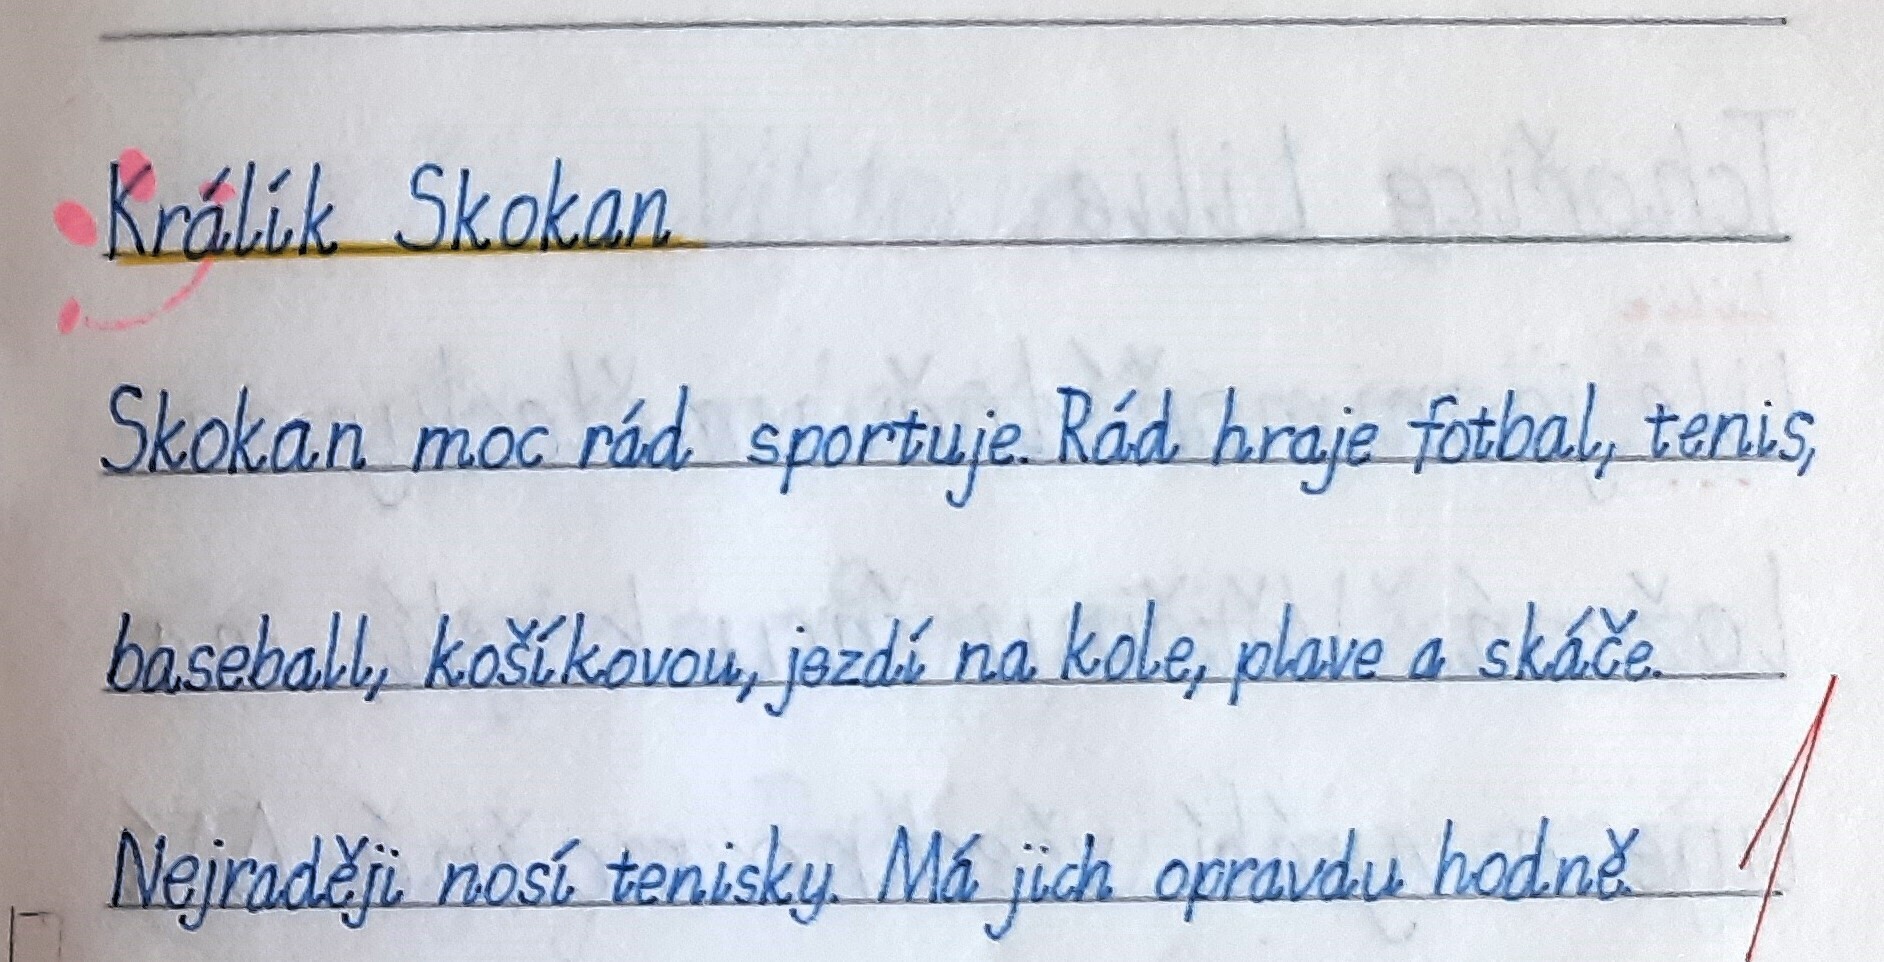 Králík Skokan
Skokan moc rád sportuje. Rád hraje fotbal, tenis,
baseball, košíkovou, jezdí na kole, plave a skáče.
Nejraději nosí tenisky. Má jich opravdu hodně.
1